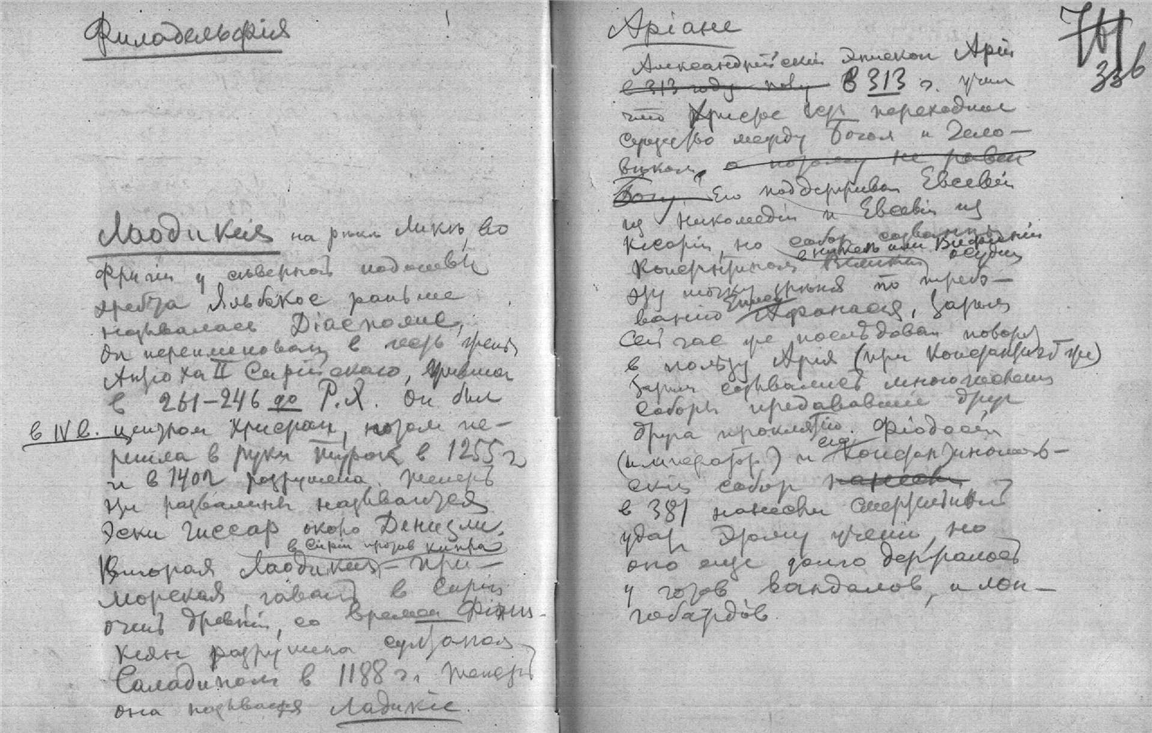 Филадельфія !
Лаодикия на рѣкѣ Ликѣ, во
Фригіи у сѣверной подошвы
хребта Яльбкос раньше
называлась Діасполис,
он переименован в честь жены
Антіоха II Сирійскаго,
в 261–246 до Р.Х. Он был
в IV в. центром Христіан, потом пе-
решла в руки турок в 1255 г
и в 1402 разрушена. Теперь
эти развалины называются
Эски Гиссар около Денизли.
в Сиріи против Кипра
Вторая Лаодикия – при-
морская гавань в Сиріи
очень древній, со времен Финик-
иян разрушена султаном
Саладином в 1188 г. теперь
она называется Ладикіе.
Аріане
761
336
Александрійскій Епископ Арій
в 313 году в 313 г. учил
что Христос есть переходное
существо между богом и чело-
вѣком, а потому не равен
Богу. Его поддерживал Евсевій
из Никомедіи и Евсевій из
Кесаріи, но собор созванный
в Никеѣ или Вифиніи
Константином Великим осудил
эту точку зрѣнія по требо-
ванію Афанасія, затѣм
сейчас же послѣдовал поворот
в пользу Арія (при Константинѣ же)
Затѣм созывались многочисленные
соборы предававшіе друг
друга проклятію. Фіодосій
(император) и его Константинополь-
скій собор нанесли
в 381 нанесли смертный
удар этому ученію, но
оно еще долго держалось
у готов вандалов, и лон-
гобардов.